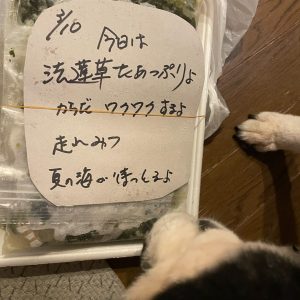 3/10
今日は
法蓮草たあっぷりよ
からだ ワクワクするよ
走れみつ
夏の海が待ってるよ